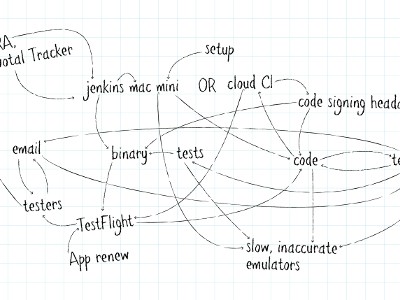 RA,
votal Tracker
setup
jenkins mac mini OR cloud CI
code signing heada
email
binary
tests
code
te
testers
TestFlight
App renew
slow, inaccurate
emulators